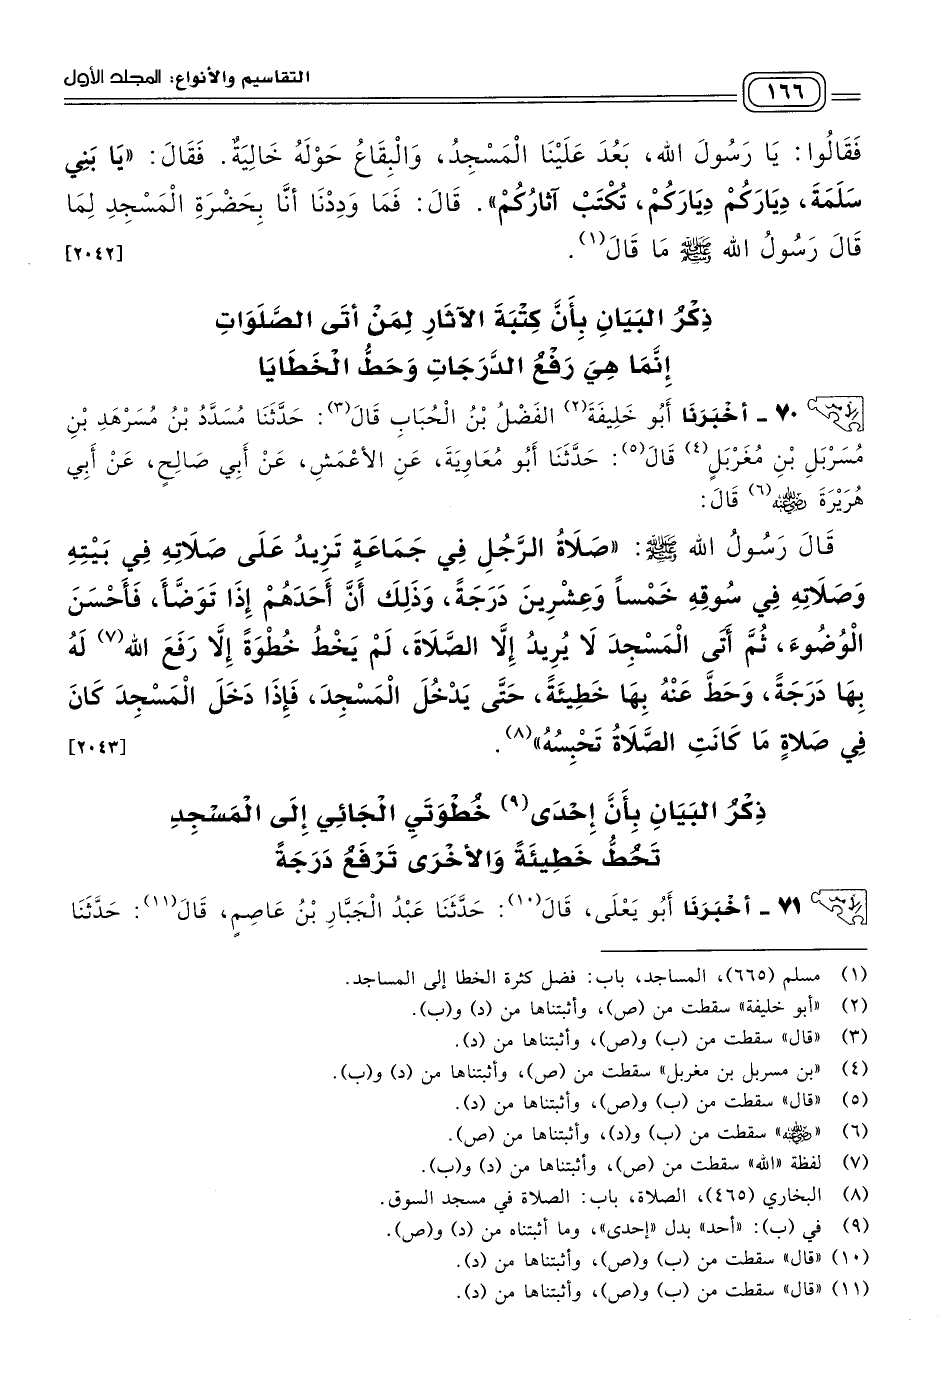 ١٦٦
التقاسيم والأنواع: المجلد الأول
فَقَالُوا: يَا رَسُولَ الله، بَعُدَ عَلَيْنَا الْمَسْجِدُ، وَالْبِقَاعُ حَوْلَهُ خَالِيَةٌ. فَقَالَ: «يَا بَنِي
سَلَمَةَ، دِيَارَكُمْ دِيَارَكُمْ، تُكْتَبْ آثَارُكُمْ». قَالَ: فَمَا وَدِدْنَا أنَّا بِحَضْرَةِ الْمَسْجِدِ لِمَا
قَالَ رَسُولُ الله ﷺ مَا قَالَ(١). [٢٠٤٢]
ذِكْرُ البَيَانِ بِأَنَّ كِتْبَةَ الآثَارِ لِمَنْ أتَى الصَّلَوَاتِ
إنَّمَا هِيَ رَفْعُ الدَّرَجَاتِ وَحَطُّ الْخَطَايَا
٧٠ - أخْبَرَنَا أَبُو خَلِيفَةَ(٢) الفَضْلُ بْنُ الْحُبَابِ قَالَ(٣): حَدَّثَنَا مُسَدَّدُ بْنُ مُسَرْهَدِ بْنِ
مُسَرْبَلِ بْنِ مُغَرْبَلٍ(٤) قَالَ(٥): حَدَّثَنَا أَبُو مُعَاوِيَةَ، عَنِ الأعْمَشِ، عَنْ أبِي صَالِحٍ، عَنْ أبِي
هُرَيْرَةَ رضي الله عنه(٦) قَالَ:
قَالَ رَسُولُ الله ﷺ: «صَلَاةُ الرَّجُلِ فِي جَمَاعَةٍ تَزِيدُ عَلَى صَلَاتِهِ فِي بَيْتِهِ
وَصَلَاتِهِ فِي سُوقِهِ خَمْساً وَعِشْرِينَ دَرَجَةً، وَذَلِكَ أنَّ أحَدَهُمْ إذَا تَوَضَّأَ، فَأَحْسَنَ
الْوُضُوءَ، ثُمَّ أتَى الْمَسْجِدَ لَا يُرِيدُ إلَّا الصَّلَاةَ، لَمْ يَخْطُ خُطْوَةً إلَّا رَفَعَ الله(٧) لَهُ
بِهَا دَرَجَةً، وَحَطَّ عَنْهُ بِهَا خَطِيئَةً، حَتَّى يَدْخُلَ الْمَسْجِدَ، فَإذَا دَخَلَ الْمَسْجِدَ كَانَ
فِي صَلَاةٍ مَا كَانَتِ الصَّلَاةُ تَحْبِسُهُ»(٨). [٢٠٤٣]
ذِكْرُ البَيَانِ بِأَنَّ إحْدَى(٩) خُطْوَتَيِ الْجَائِي إلَى الْمَسْجِدِ
تَحُطُّ خَطِيئَةً وَالأخْرَى تَرْفَعُ دَرَجَةً
٧١ - أخْبَرَنَا أَبُو يَعْلَى، قَالَ(١٠): حَدَّثَنَا عَبْدُ الْجَبَّارِ بْنُ عَاصِمٍ، قَالَ(١١): حَدَّثَنَا
(١) مسلم (٦٦٥)، المساجد، باب: فضل كثرة الخطا إلى المساجد.
(٢) «أبو خليفة» سقطت من (ص)، وأثبتناها من (د) و(ب).
(٣) «قال» سقطت من (ب) و(ص)، وأثبتناها من (د).
(٤) «بن مسربل بن مغربل» سقطت من (ص)، وأثبتناها من (د) و(ب).
(٥) «قال» سقطت من (ب) و(ص)، وأثبتناها من (د).
(٦) «رضي الله عنه» سقطت من (ب) و(د)، وأثبتناها من (ص).
(٧) لفظة «الله» سقطت من (ص)، وأثبتناها من (د) و(ب).
(٨) البخاري (٤٦٥)، الصلاة، باب: الصلاة في مسجد السوق.
(٩) في (ب): «أحد» بدل «إحدى»، وما أثبتناه من (د) و(ص).
(١٠) «قال» سقطت من (ب) و(ص)، وأثبتناها من (د).
(١١) «قال» سقطت من (ب) و(ص)، وأثبتناها من (د).